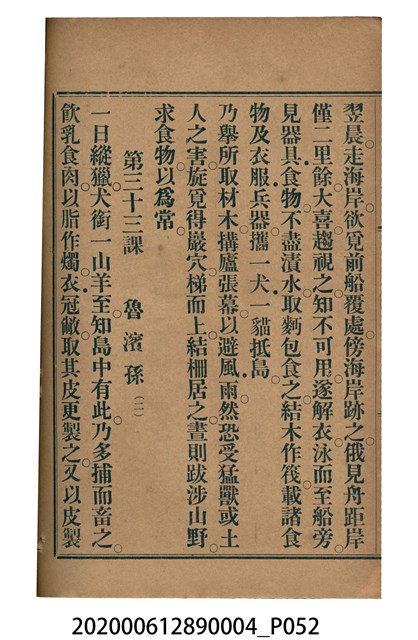 翌晨。走海岸。欲覓前船覆處。傍海岸跡之。俄見舟距岸
僅二里餘。大喜。趨視之。知不可用。遂解衣泳而至船旁
見器具食物。不盡漬水。取麪包食之。結木作筏。載諸食
物及衣服兵器。攜一犬一貓抵島。
乃舉所取材木。搆廬張幕。以避風雨。然恐受猛獸或土
人之害。旋覓得巖穴。梯而上。結柵居之。晝則跋涉山野。
求食物以爲常。
第三十三課 魯濱孫(二)
一日縱獵犬。銜一山羊至。知島中有此。乃多捕而畜之。
飲乳食肉。以脂作燭。衣冠敝。取其皮更製之。又以皮製
202000612890004_P052